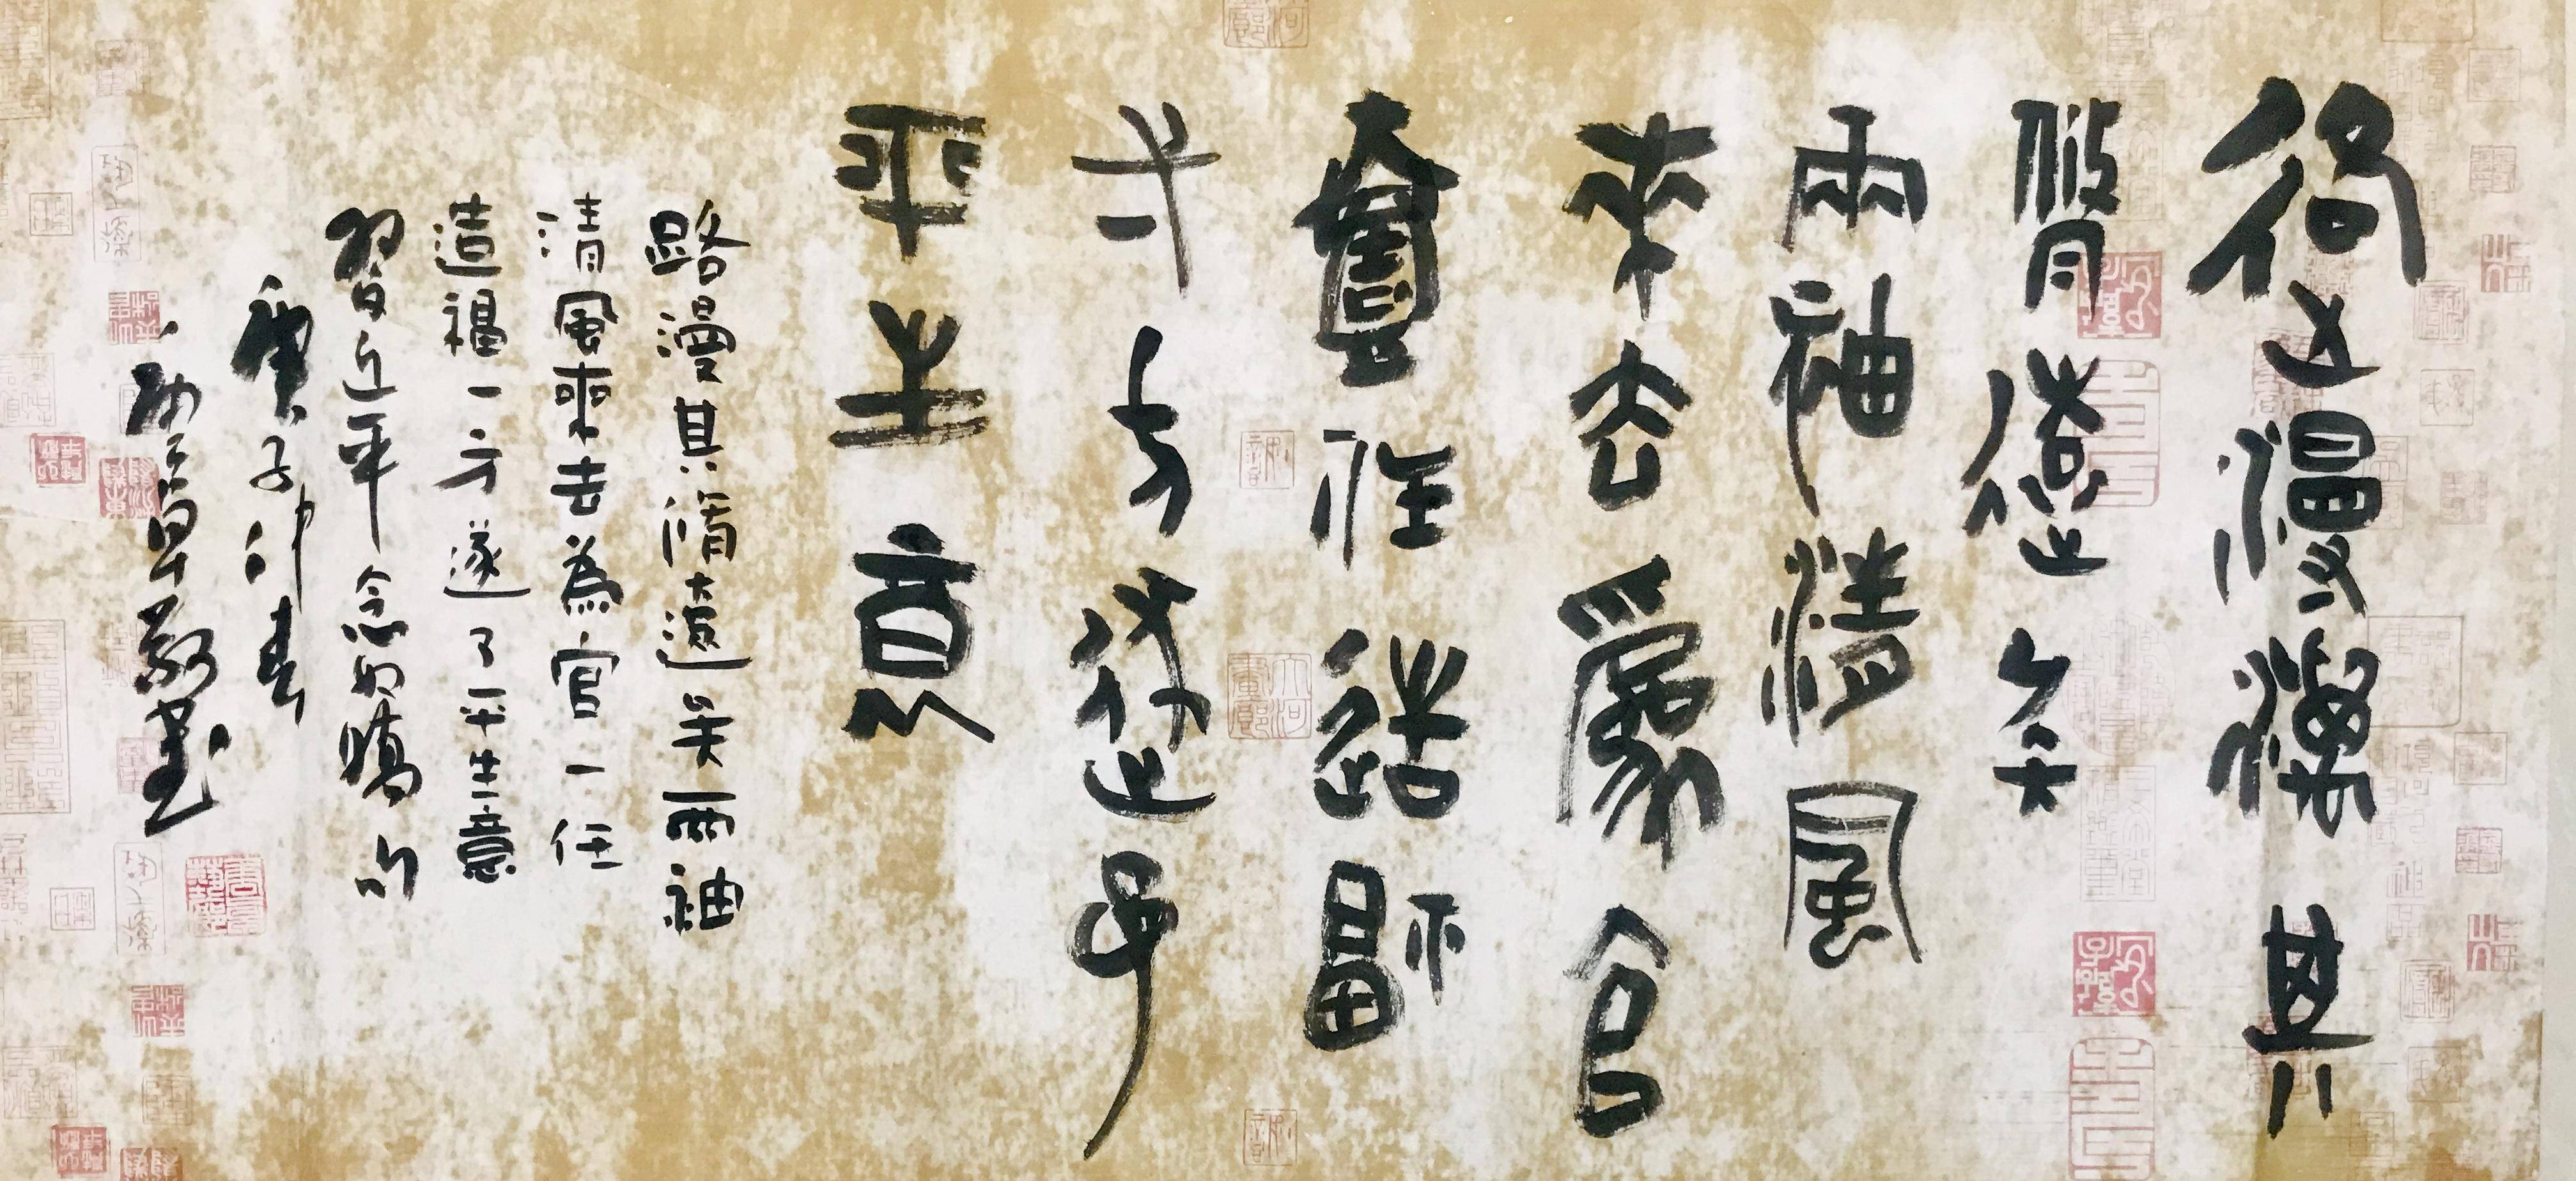 路漫漫其
脩遠矣
兩袖清風
來去爲官
壹任造福
弌方遂
平生意
路漫其脩遠矣兩袖
清風來去為官一任
造福一方遂了平生意
習近平念奴嬌句
庚子仲春
敬書